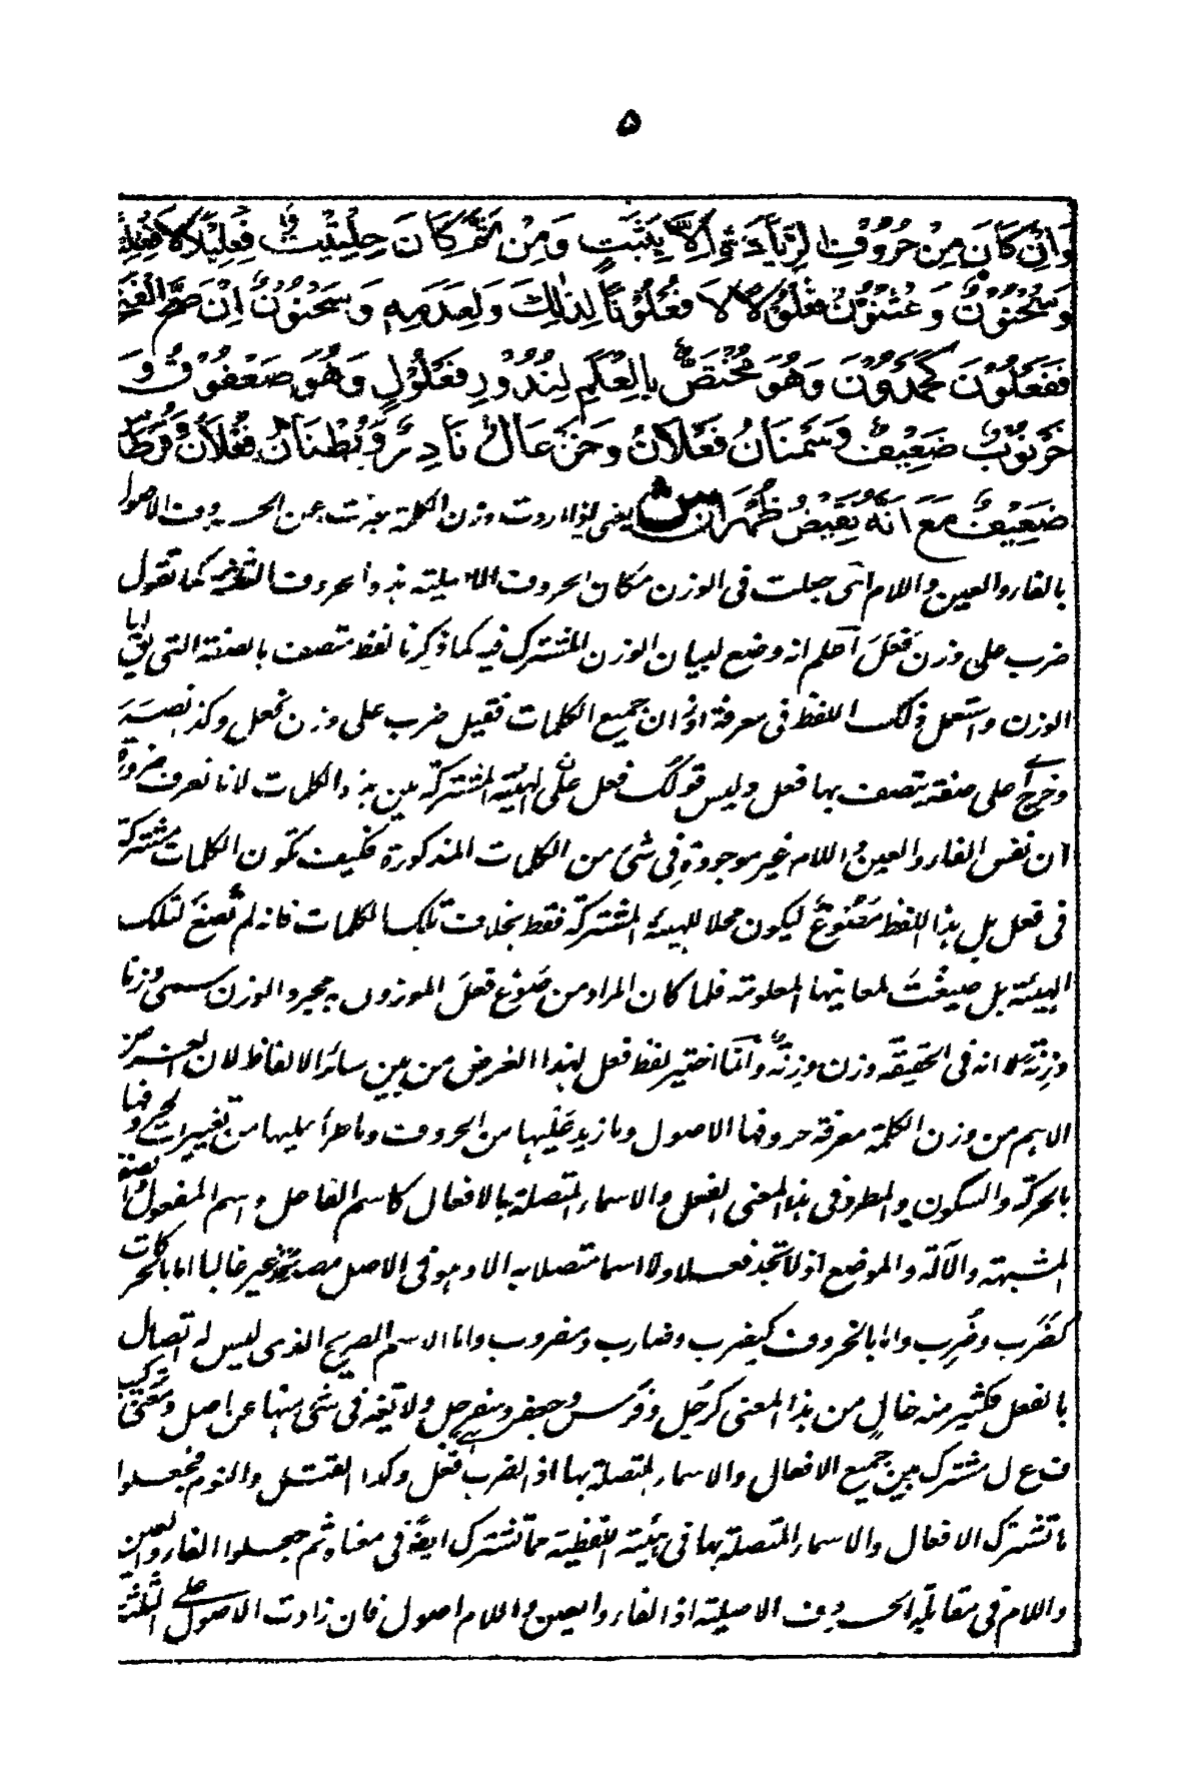 ۵
وَاِنْ كَانَ مِنْ حُرُوْفِ الزِّيَادَةِ اِلَّا بِثَبَتٍ وَمِنْ ثَمَّ كَانَ حِلْتِيْتٌ فِعْلِيْلًا لَا فِعْلِيْتًا
وَسُحْنُوْنٌ وَعُثْنُوْنٌ فُعْلُوْلًا لَا فُعْلُوْنًا لِذٰلِكَ وَلِعَدَمِهٖ وَسَحْنُوْنٌ اِنْ صَحَّ الْفَتْحُ
فَفَعْلُوْنَ كَحَمْدُوْنَ وَهُوَ مُخْتَصٌّ بِالْعَلَمِ لِنُدُوْرِ فَعْلُوْلٍ وَهُوَ صَعْفُوْقٌ وَ
خَرْنُوْبٌ ضَعِيْفٌ وَسَمْنَانُ فَعْلَانُ وَخَزْعَالٌ نَادِرٌ وَبُطْنَانٌ فُعْلَانٌ وَقُرْطَاسٌ
ضَعِيْفٌ مَعَ اَنَّهٗ نَقِيْضُ ظُهْرَانٍ ش يعنى اذا اردت وزن الكلمة عبرت عن الحروف الاصول
بالفاء والعين واللام اى جعلت فى الوزن مكان الحروف الاصلية هذه الحروف الثلثة كما تقول
ضرب على وزن فَعَلَ اعلم انه وضع لبيان الوزن المشترك فيه كما ذكرنا لفظ متصف بالصفة التى يقال لها
الوزن واستعمل ذلك اللفظ فى معرفة اوزان جميع الكلمات فقيل ضرب على وزن فعل وكذا نصر
وخرج اى على صفة يتصف بها فعل وليس قولك فعل هى الهيئة المشتركة بين هذه الكلمات لانا نعرف ضرورة
ان نفس الفاء والعين واللام غير موجودة فى شئ من الكلمات المذكورة فكيف تكون الكلمات مشتركة
فى فعل بل هذا اللفظ مَصُوْغٌ ليكون محلا للهيئة المشتركة فقط بخلاف تلك الكلمات فانه لم تُصَغْ لتلك
الهيئة بل صيغت لمعانيها المعلومة فلما كان المراد من صَوْغ فَعَلَ الموزون به مجرد الوزن سمى وزنا
وزِنَةً لا انه فى الحقيقة وزن وزِنَة وانما اختير لفظ فعل لهذا الغرض من بين سائر الالفاظ لان الغرض
الاهم من وزن الكلمة معرفة حروفها الاصول وما زيد عليها من الحروف وما طرأ عليها من تغييرات لحروفها
بالحركة والسكون والمطرد فى هذا المعنى الفعل والاسماء المتصلة بالافعال كاسم الفاعل واسم المفعول والصفة
المشبهة والآلة والموضع اذ لا تجد فعلا ولا اسما متصلا به الا وهو فى الاصل مصدر تغير غالبا اما بالحركات
كضَرَب وضُرِب واما بالحروف كيضرب وضارب ومضروب واما الاسم الصريح الذى ليس له اتصال
بالفعل فكثير منه خالٍ من هذا المعنى كرَجُل وفَرَس وجعفر وسفرجل ولا تغير فى شئ منها عن اصل ومعنى تركيب
ف ع ل مشترك بين جميع الافعال والاسماء المتصلة بها اذ الضرب فعل وكذا القتل والنوم فجعلوا
ما تشترك الافعال والاسماء المتصلة بها فى هيئته اللفظية مما تشترك ايضا فى معناه ثم جعلوا الفاء والعين
واللام فى مقابلة الحروف الاصلية اذ الفاء والعين واللام اصول فان زادت الاصول على الثلثة